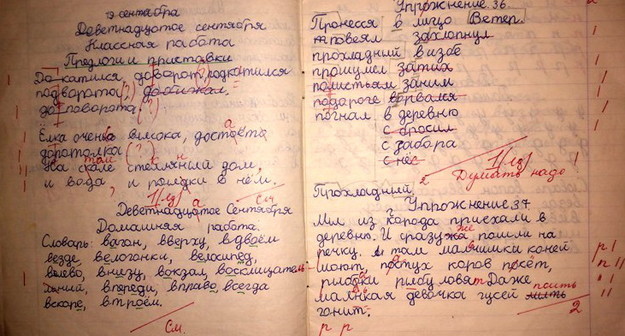 9 сентября
Деветнадцотое сентября
Классная работа
Предлоги и приставки
До катился, доворот, подкатился
подворота(?) достижал.
доповорота (?)
Елка очень высока, достаёта
дополтолка (?)
На скале стеклянный дом,
и вода, и поилки в нём.
1(-ца)
См
Деветнадцотое Сентября
Домашняя работа.
Словарь: вагон, вверху, вдвоём
везде, велогонки, велосипед,
влево, внизу, вокзал, восклицатель-
ный, впереди, вправо, всегда
вскоре, втроём.
См.
Упрожнение 36
Пронёсся в лицо Ветер.
повеял захлопнул
прохладный визбе
прошумел затих
полистьям заним
подороге ворвался
погнал в деревню
с бросил
с забора
с нёс
1(-ца)
2 Думать надо
Прохладний
Упрожнение 37
Мы из города приехали в
деревню. И сразужа пошли на
речку. А там малшики коней
моют, повтух коров посёт,
рибоки рилбу ловят. Даже
малнкая девочка гусей пасить
гонит. 2
р р